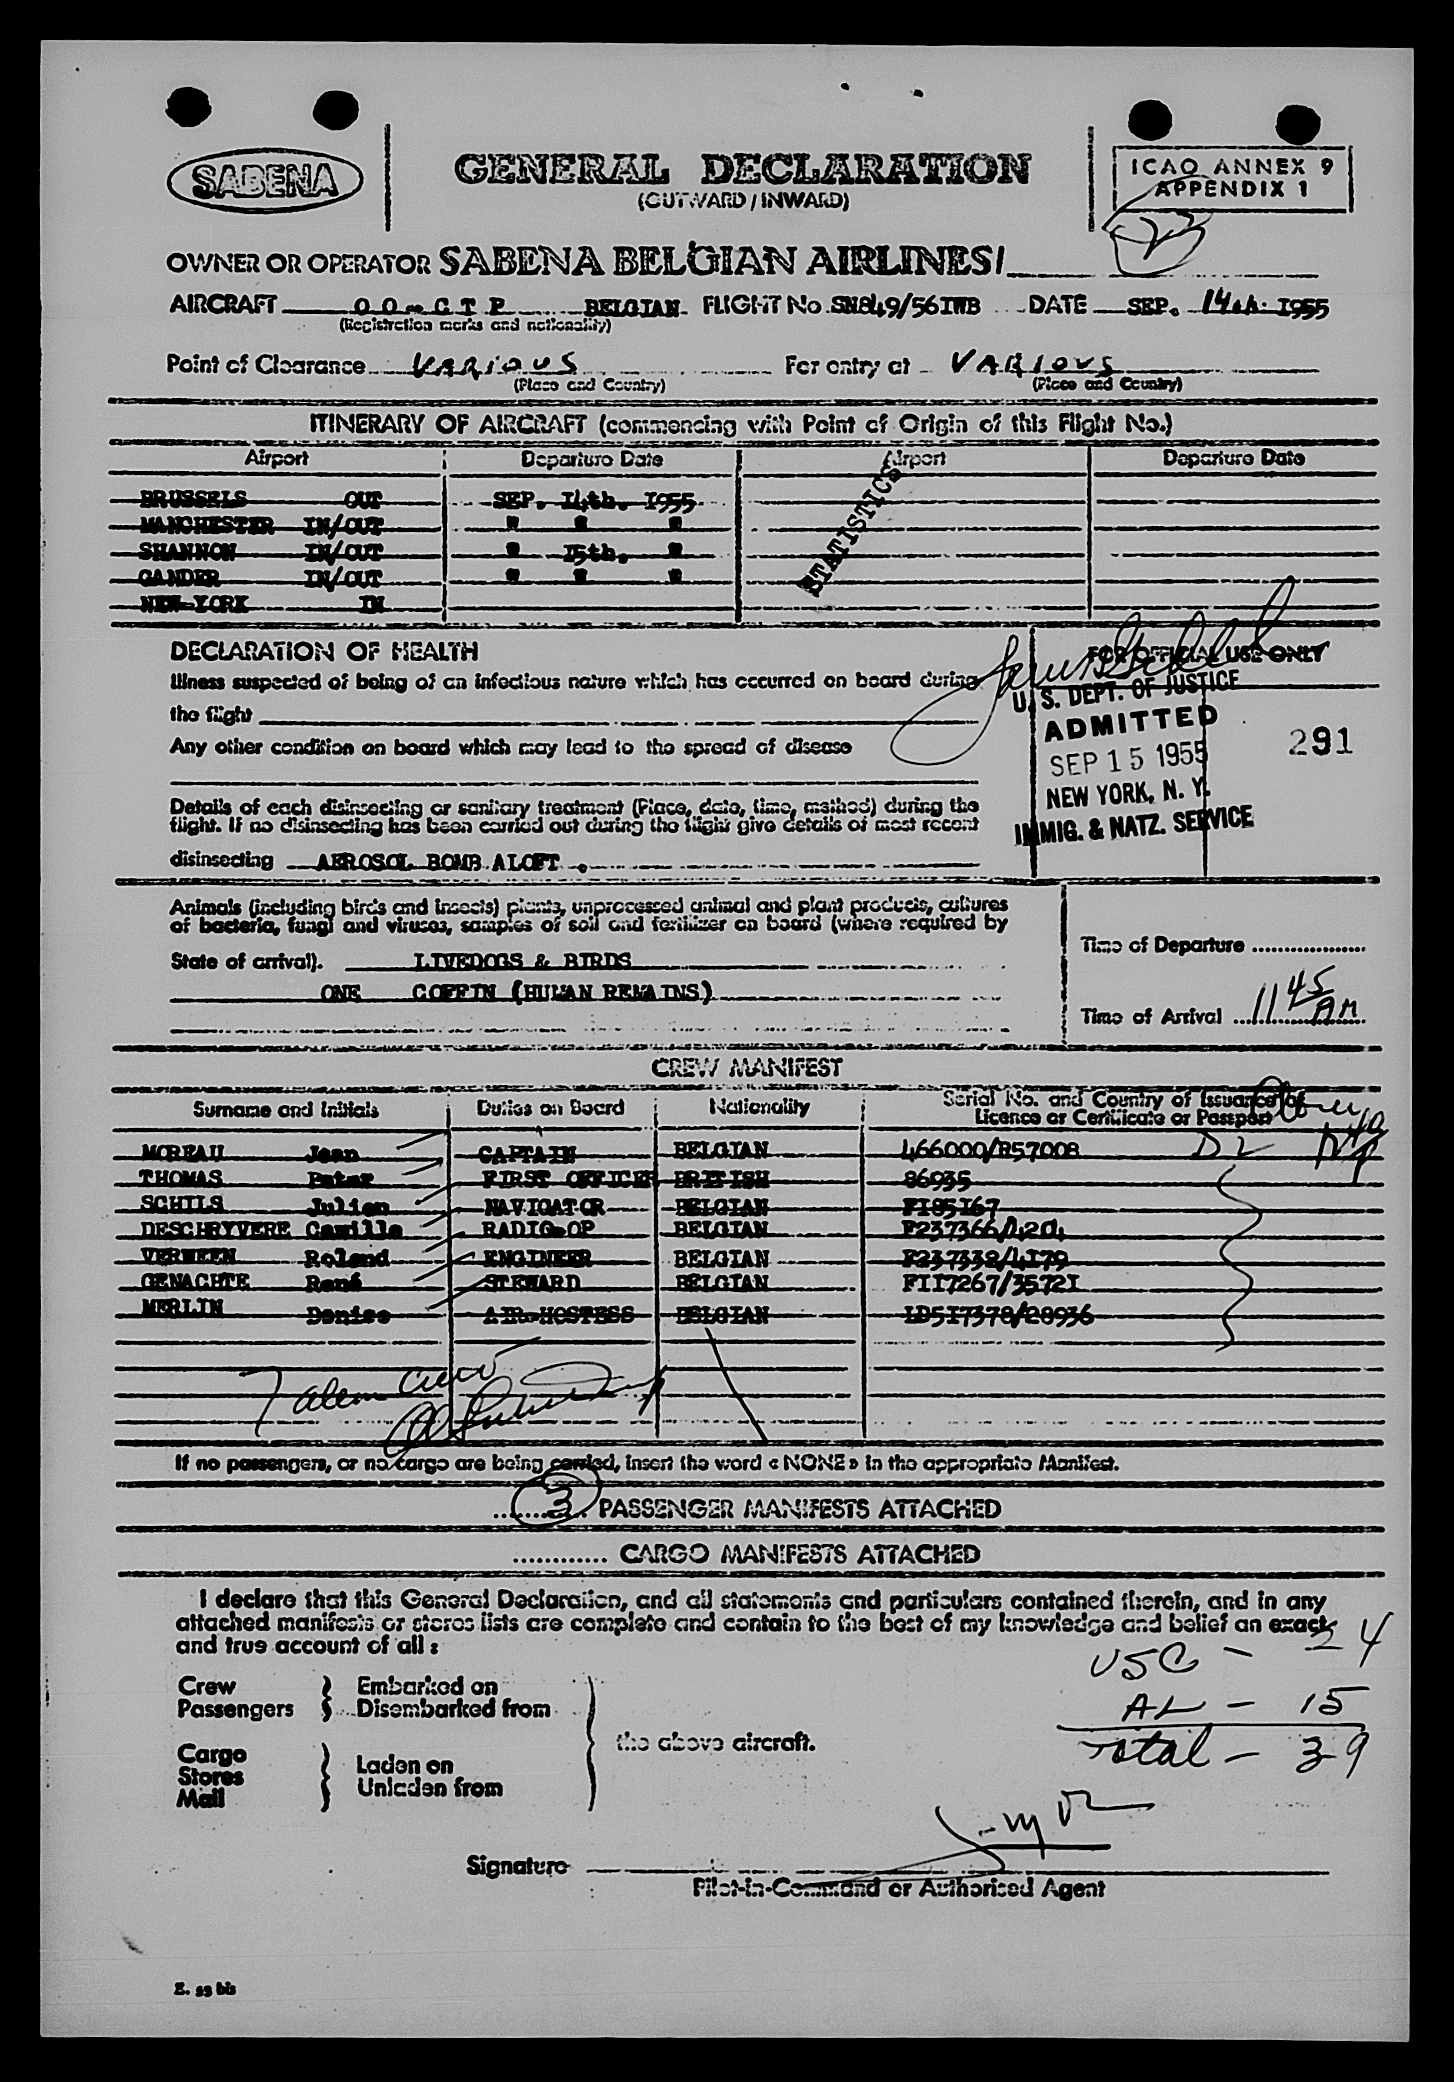 SABENA
GENERAL DECLARATION
(OUTWARD / INWARD)
ICAO ANNEX 9
APPENDIX 1
OWNER OR OPERATOR SABENA BELGIAN AIRLINES/
AIRCRAFT OO-CTP BELGIAN FLIGHT No SN849/56IWB DATE SEP. 14th. I955
(Registration marks and nationality)
Point of Clearance VARIOUS For entry at VARIOUS
(Place and Country) (Place and Country)
ITINERARY OF AIRCRAFT (commencing with Point of Origin of this Flight No.)
Airport Departure Date Airport Departure Date
BRUSSELS OUT SEP. I4th. I955
MANCHESTER IN/OUT " " "
SHANNON IN/OUT " I5th. "
GANDER IN/OUT " " "
NEW-YORK IN
STATISTICS
DECLARATION OF HEALTH
FOR OFFICIAL USE ONLY
Illness suspected of being of an infectious nature which has occurred on board during
the flight
Any other condition on board which may lead to the spread of disease
U. S. DEPT. OF JUSTICE
ADMITTED
SEP 15 1955
NEW YORK, N. Y.
IMMIG. & NATZ. SERVICE
291
Details of each disinsecting or sanitary treatment (Place, date, time, method) during the
flight. If no disinsecting has been carried out during the flight give details of most recent
disinsecting AEROSOL BOMB ALOFT .
Animals (including birds and insects) plants, unprocessed animal and plant products, cultures
of bacteria, fungi and viruses, samples of soil and fertilizer on board (where required by
State of arrival). LIVEDOGS & BIRDS
ONE COFFIN (HUMAN REMAINS)
Time of Departure
Time of Arrival 11 45 AM
CREW MANIFEST
Surname and Initials Duties on Board Nationality Serial No. and Country of Issuance of
Licence or Certificate or Passport
MOREAU Jean CAPTAIN BELGIAN 466000/B57008 D L
THOMAS Peter FIRST OFFICER BRITISH 86935
SCHILS Julien NAVIGATOR BELGIAN FI85I67
DESCHRYVERE Camille RADIO-OP BELGIAN F237366/4204
VERMEEN Roland ENGINEER BELGIAN F237338/4I79
GENACHTE René STEWARD BELGIAN FII7267/3572I
MERLIN Denise AIR-HOSTESS BELGIAN LD5I7378/28936
7 alem crew
If no passengers, or no cargo are being carried, insert the word « NONE » in the appropriate Manifest.
3 PASSENGER MANIFESTS ATTACHED
CARGO MANIFESTS ATTACHED
I declare that this General Declaration, and all statements and particulars contained therein, and in any
attached manifests or stores lists are complete and contain to the best of my knowledge and belief an exact
and true account of all :
USC - 24
AL - 15
Total - 39
Crew
Passengers
Embarked on
Disembarked from
Cargo
Stores
Mail
Laden on
Unladen from
the above aircraft.
Signature
Pilot-in-Command or Authorised Agent
E. 53 bis